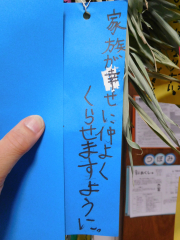 家族が幸せに仲よく
くらせますように。